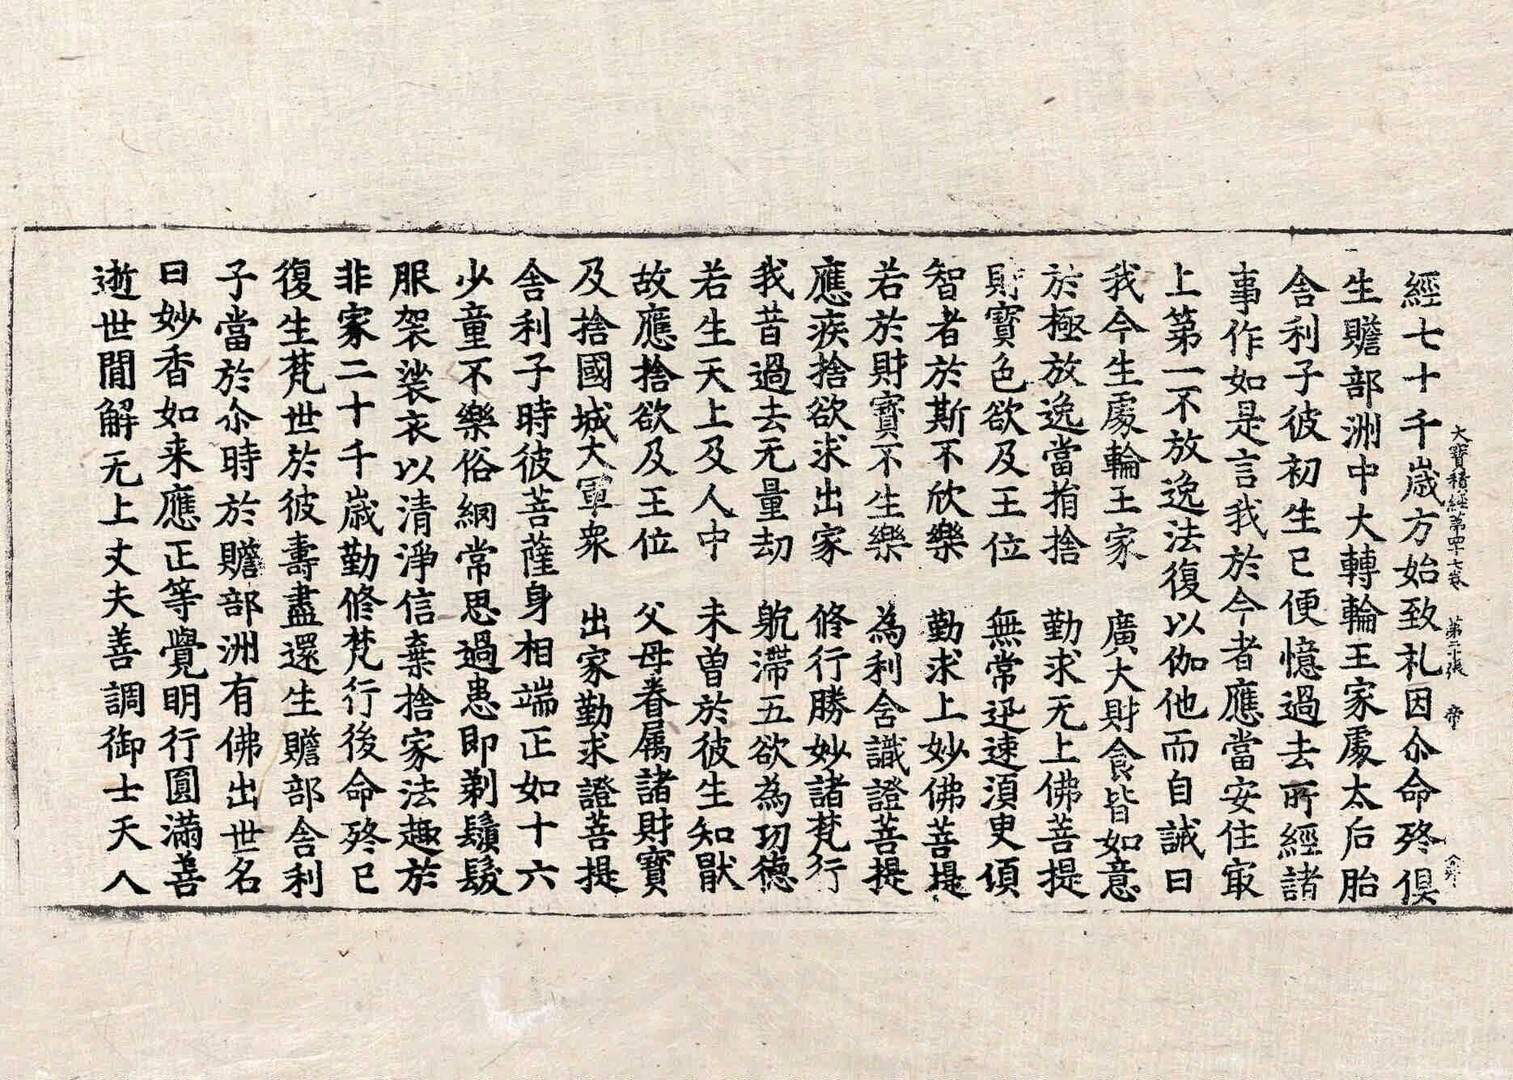 大寶積經第四十七卷 第二張 帝
經七十千歲方始致礼因尒命終俱
生贍部洲中大轉輪王家處太后胎
舍利子彼初生已便憶過去所經諸
事作如是言我於今者應當安住㝡
上第一不放逸法復以伽他而自誡曰
我今生處輪王家 廣大財食皆如意
於極放逸當捐捨 勤求无上佛菩提
財寶色欲及王位 無常迅速須臾頃
智者於斯不欣樂 勤求上妙佛菩提
若於財寶不生樂 為利含識證菩提
應疾捨欲求出家 修行勝妙諸梵行
我昔過去无量劫 躭滯五欲為功德
若生天上及人中 未曾於彼生知猒
故應捨欲及王位 父母眷屬諸財寶
及捨國城大軍衆 出家勤求證菩提
舍利子時彼菩薩身相端正如十六
少童不樂俗網常思過患即剃鬚髮
服袈裟衣以清淨信棄捨家法趣於
非家二十千歲勤修梵行後命終已
復生梵世於彼壽盡還生贍部舍利
子當於尒時於贍部洲有佛出世名
曰妙香如来應正等覺明行圓滿善
逝世間解无上丈夫善調御士天人